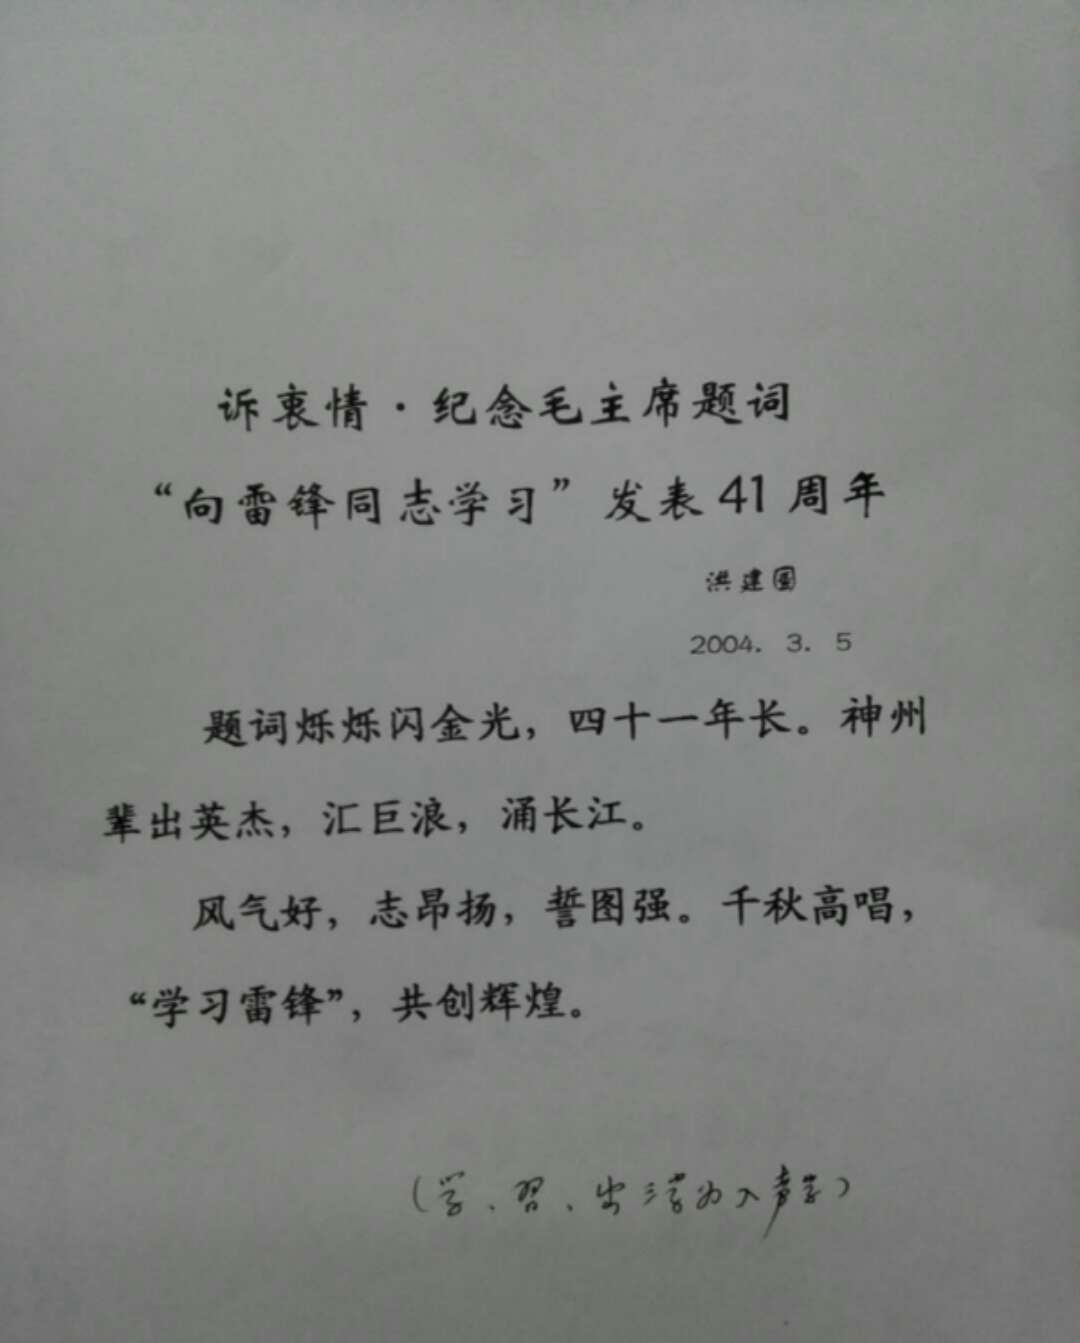 诉衷情·纪念毛主席题词
“向雷锋同志学习”发表41周年
洪建国
2004. 3. 5
题词烁烁闪金光，四十一年长。神州
辈出英杰，汇巨浪，涌长江。
风气好，志昂扬，誓图强。千秋高唱，
“学习雷锋”，共创辉煌。
（学、习、出三字为入声字）